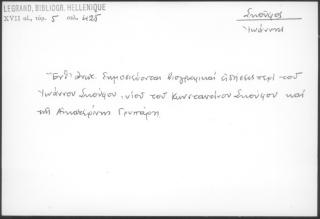 LEGRAND, BIBLIOGR. HELLENIQUE
XVII αἰ, τόμ. 5 σελ. 425
Σκοῦφος
Ἰωάννης
δημοσιεύονται βιογραφικαί εἰδήσεις περί τοῦ
Ἰωάννου Σκούφου, υἱοῦ τοῦ Κωνσταντίνου Σκούφου καί
τῆς Αἰκατερίνης Γρυπάρη